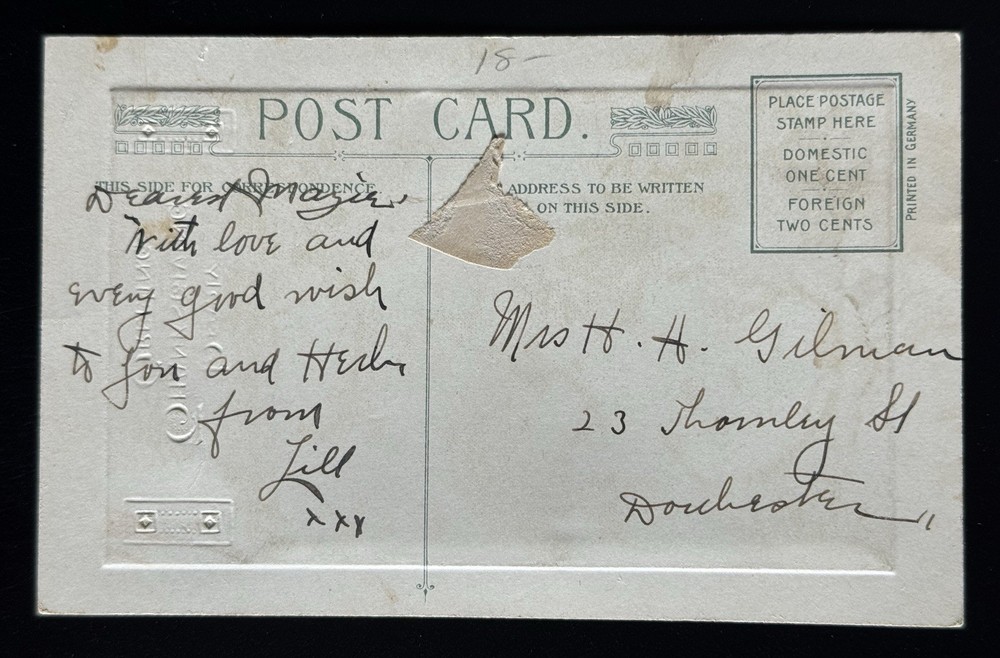 18-
POST CARD.
THIS SIDE FOR CORRESPONDENCE.
ADDRESS TO BE WRITTEN
ON THIS SIDE.
PLACE POSTAGE
STAMP HERE
DOMESTIC
ONE CENT
FOREIGN
TWO CENTS
PRINTED IN GERMANY
Dearest Mazie
With love and
every good wish
to you and Herb
from
Lill
xxx
Mrs H. H. Gilman
23 Thornley St
Dorchester